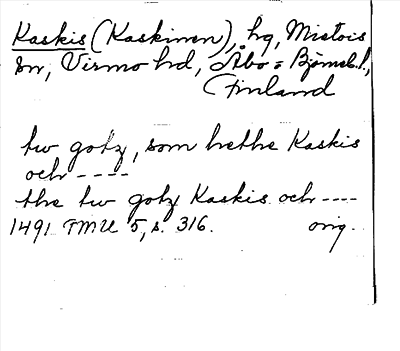 Kaskis (Kaskinen), hg, Mietois
sn, Virmo hd, Åbo o Björneb. l.,
Finland
tw gotz, som hethe Kaskis
och ----
the tw gotz Kaskis och ----
1491 FMU 5, s. 316. orig.